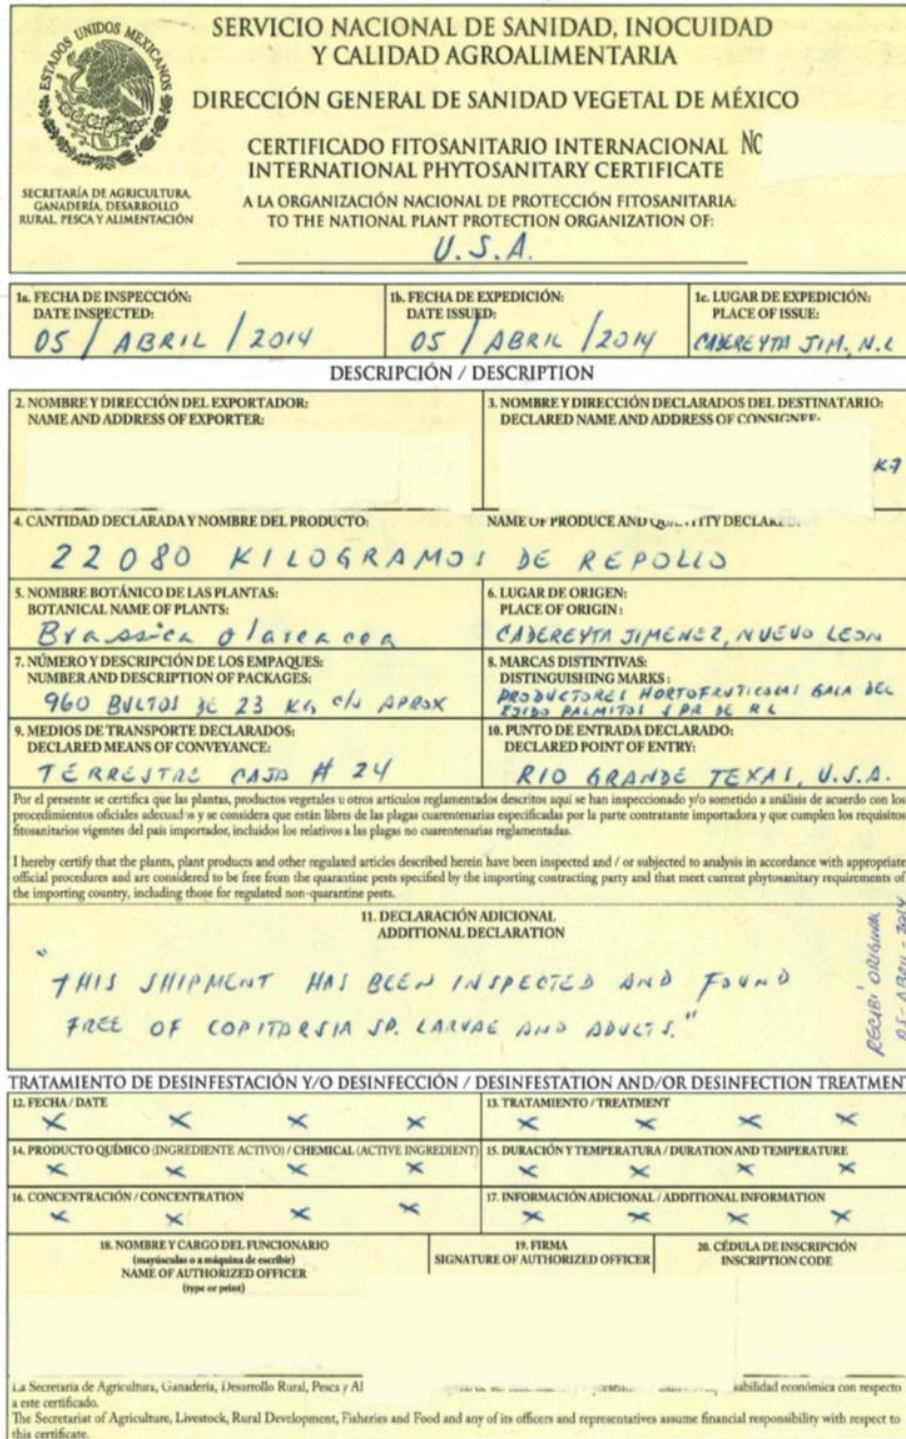 ESTADOS UNIDOS MEXICANOS
SECRETARÍA DE AGRICULTURA,
GANADERÍA, DESARROLLO
RURAL, PESCA Y ALIMENTACIÓN
SERVICIO NACIONAL DE SANIDAD, INOCUIDAD
Y CALIDAD AGROALIMENTARIA
DIRECCIÓN GENERAL DE SANIDAD VEGETAL DE MÉXICO
CERTIFICADO FITOSANITARIO INTERNACIONAL
INTERNATIONAL PHYTOSANITARY CERTIFICATE
A LA ORGANIZACIÓN NACIONAL DE PROTECCIÓN FITOSANITARIA:
TO THE NATIONAL PLANT PROTECTION ORGANIZATION OF:
U.S.A.
1a. FECHA DE INSPECCIÓN:
DATE INSPECTED:
05 / ABRIL / 2014
1b. FECHA DE EXPEDICIÓN:
DATE ISSUED:
05 / ABRIL / 2014
1c. LUGAR DE EXPEDICIÓN:
PLACE OF ISSUE:
CADEREYTA JIM, N.L
DESCRIPCIÓN / DESCRIPTION
2. NOMBRE Y DIRECCIÓN DEL EXPORTADOR:
NAME AND ADDRESS OF EXPORTER:
3. NOMBRE Y DIRECCIÓN DECLARADOS DEL DESTINATARIO:
DECLARED NAME AND ADDRESS OF CONSIGNEE:
K-7
4. CANTIDAD DECLARADA Y NOMBRE DEL PRODUCTO:
NAME OF PRODUCE AND QUANTITY DECLARED:
22080 KILOGRAMOS DE REPOLLO
5. NOMBRE BOTÁNICO DE LAS PLANTAS:
BOTANICAL NAME OF PLANTS:
Brassica olareacea
6. LUGAR DE ORIGEN:
PLACE OF ORIGIN:
CADEREYTA JIMÉNEZ, NUEVO LEON
7. NÚMERO Y DESCRIPCIÓN DE LOS EMPAQUES:
NUMBER AND DESCRIPTION OF PACKAGES:
960 BULTOS DE 23 KG c/u APROX
8. MARCAS DISTINTIVAS:
DISTINGUISHING MARKS:
PRODUCTORES HORTOFRUTICOLAS DEL
EJIDO PALMITOS SPR DE RL
9. MEDIOS DE TRANSPORTE DECLARADOS:
DECLARED MEANS OF CONVEYANCE:
TERRESTRE CAJA # 24
10. PUNTO DE ENTRADA DECLARADO:
DECLARED POINT OF ENTRY:
RIO GRANDE TEXAS, U.S.A.
Por el presente se certifica que las plantas, productos vegetales u otros artículos reglamentados descritos aquí se han inspeccionado y/o sometido a análisis de acuerdo con los
procedimientos oficiales adecuados y se considera que están libres de las plagas cuarentenarias especificadas por la parte contratante importadora y que cumplen los requisitos
fitosanitarios vigentes del país importador, incluidos los relativos a las plagas no cuarentenarias reglamentadas.
I hereby certify that the plants, plant products and other regulated articles described herein have been inspected and / or subjected to analysis in accordance with appropriate
official procedures and are considered to be free from the quarantine pests specified by the importing contracting party and that meet current phytosanitary requirements of
the importing country, including those for regulated non-quarantine pests.
11. DECLARACIÓN ADICIONAL
ADDITIONAL DECLARATION
"THIS SHIPMENT HAS BEEN INSPECTED AND FOUND
FREE OF COPITARSIA SP. LARVAE AND ADULTS."
RECIBÍ ORIGINAL
05-ABRIL-2014
TRATAMIENTO DE DESINFESTACIÓN Y/O DESINFECCIÓN / DESINFESTATION AND/OR DESINFECTION TREATMENT
12. FECHA / DATE
X X X X
13. TRATAMIENTO / TREATMENT
X X X X
14. PRODUCTO QUÍMICO (INGREDIENTE ACTIVO) / CHEMICAL (ACTIVE INGREDIENT)
X X X X
15. DURACIÓN Y TEMPERATURA / DURATION AND TEMPERATURE
X X X X
16. CONCENTRACIÓN / CONCENTRATION
X X X X
17. INFORMACIÓN ADICIONAL / ADDITIONAL INFORMATION
X X X X
18. NOMBRE Y CARGO DEL FUNCIONARIO
(mayúsculas o a máquina de escribir)
NAME OF AUTHORIZED OFFICER
(type or print)
19. FIRMA
SIGNATURE OF AUTHORIZED OFFICER
20. CÉDULA DE INSCRIPCIÓN
INSCRIPTION CODE
La Secretaría de Agricultura, Ganadería, Desarrollo Rural, Pesca y Al
abilidad económica con respecto
a este certificado.
The Secretariat of Agriculture, Livestock, Rural Development, Fisheries and Food and any of its officers and representatives assume financial responsibility with respect to
this certificate.